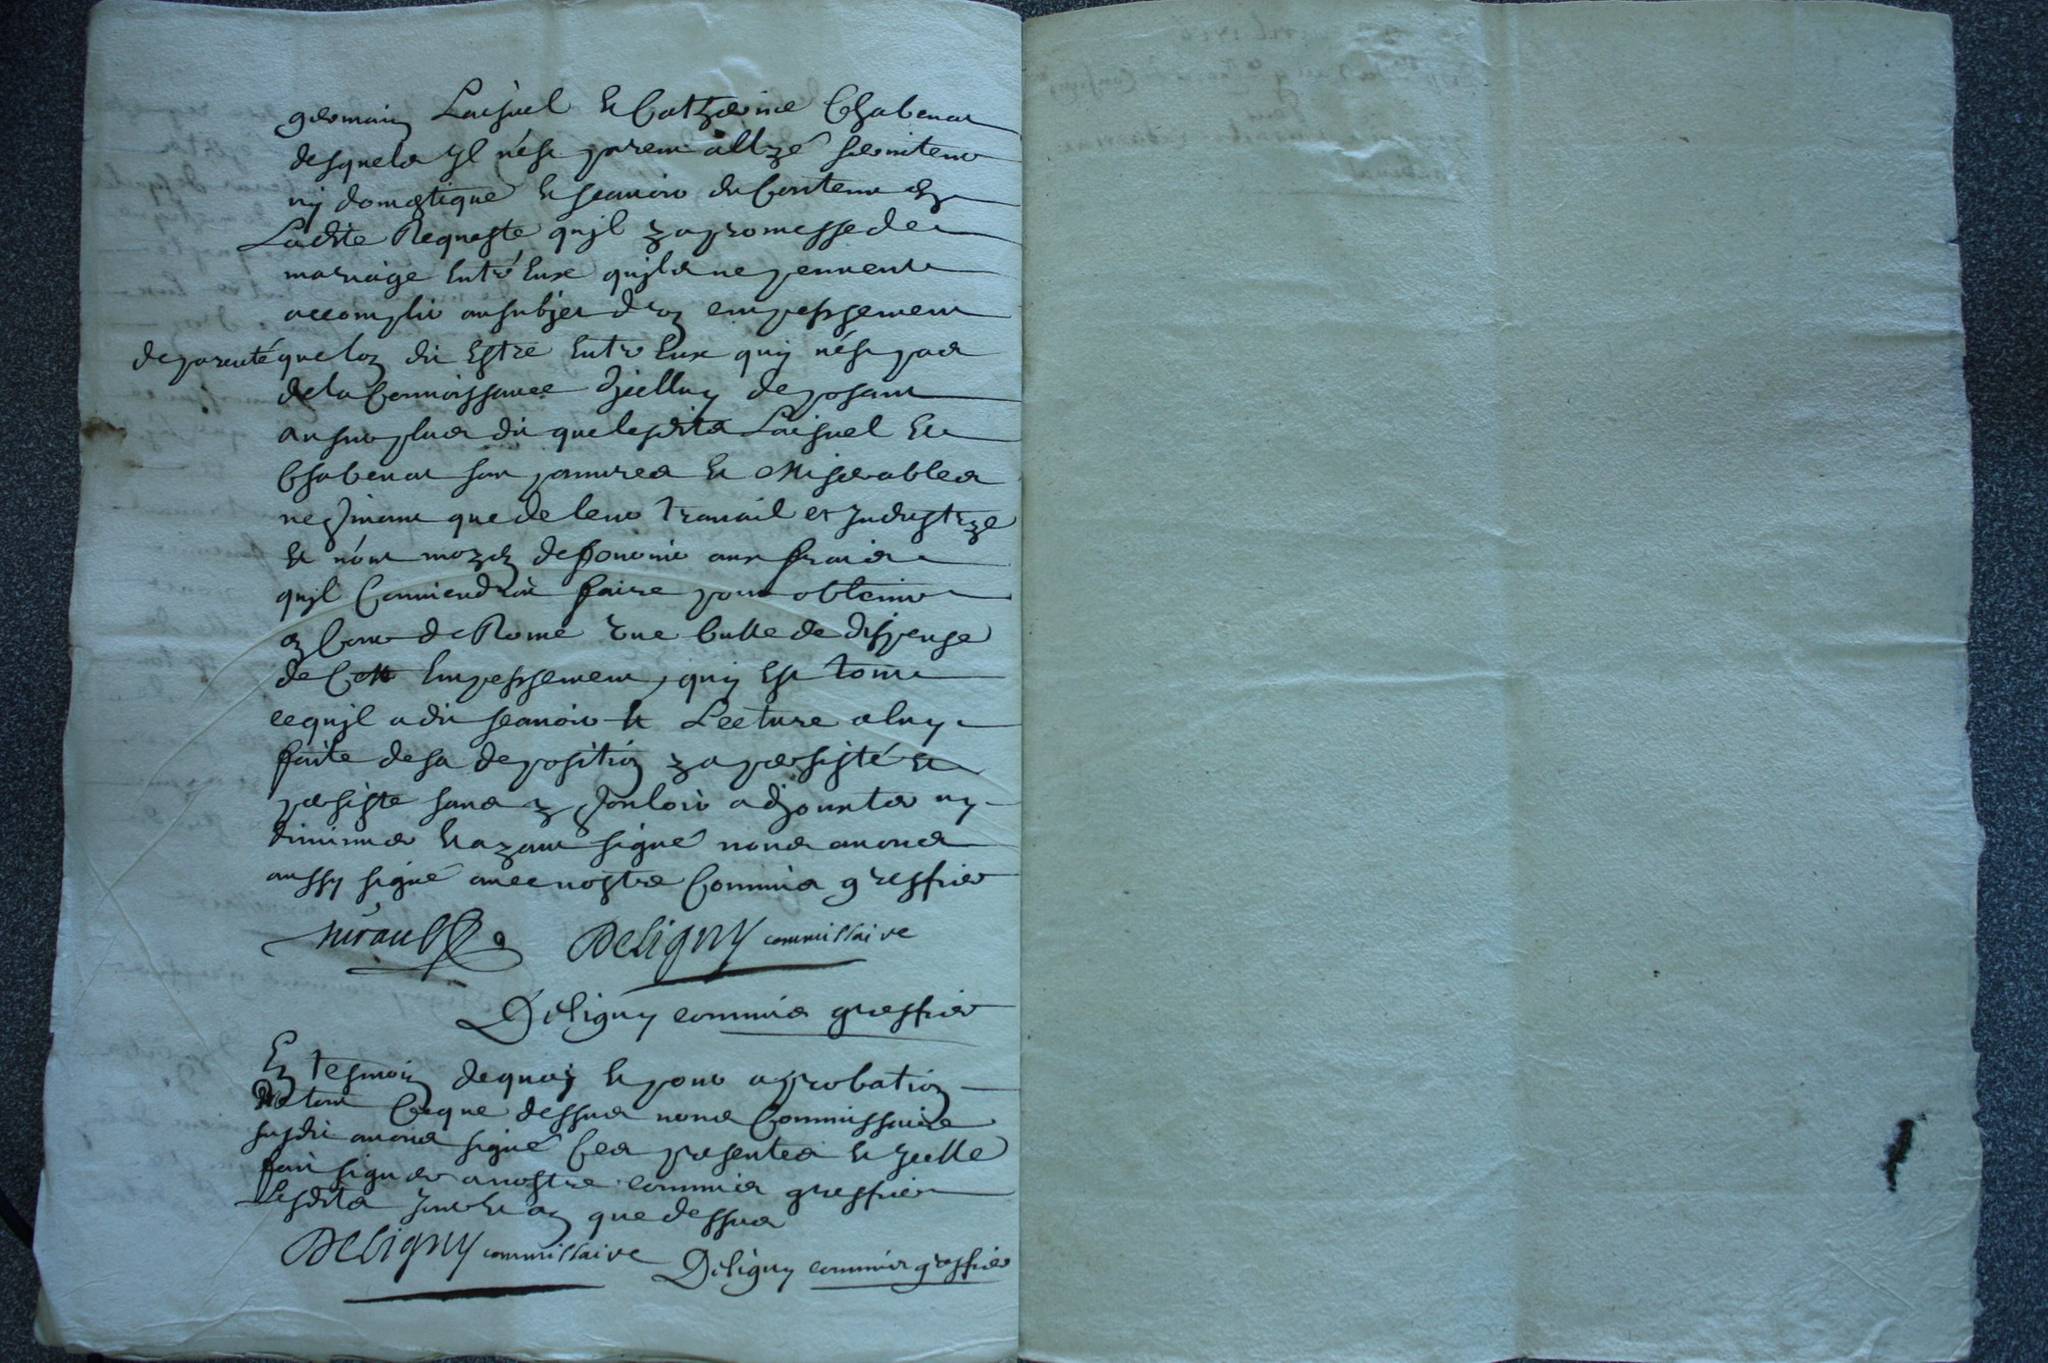 germain Laisnel et Catherine Chabenat
desquels il n'est parent allyé serviteur
ny domestique et scavoir du contenu en
Ladite Requeste qu'il y a promesse de
mariage entr'eux qu'ils ne peuvent
accomplir au subjet d'un empeschement
de parenté que lon dit Estre entr'eux quy n'est pas
de la Connoissance d'icelluy deposant
au surplus dit que lesdits Laisnel et
Chabenat sont pauvres et Miserables
ne vivant que de leur travail et industrye
et n'ont moyen de fournir aux frais
qu'il Conviendroit faire pour obtenir
en Cour de Rome une bulle de dispense
de Cet Empeschement, quy Est tout
ce qu'il a dit scavoir et Lecture a luy
faite de sa deposition y a persisté et
persiste sans y vouloir adjouxter ny
diminuer et ayant signé nous avons
aussy signé avec nostre Commis greffier
Deligny commissaire
Deligny commis greffier
En tesmoin de quoy et pour approbation
de tout Ce que dessus nous Commissaire
susdit avons signé Ces presentes et icelle
fait signer a nostre commis greffier
Lesdits jour et an que dessus
Deligny commissaire Deligny commis greffier